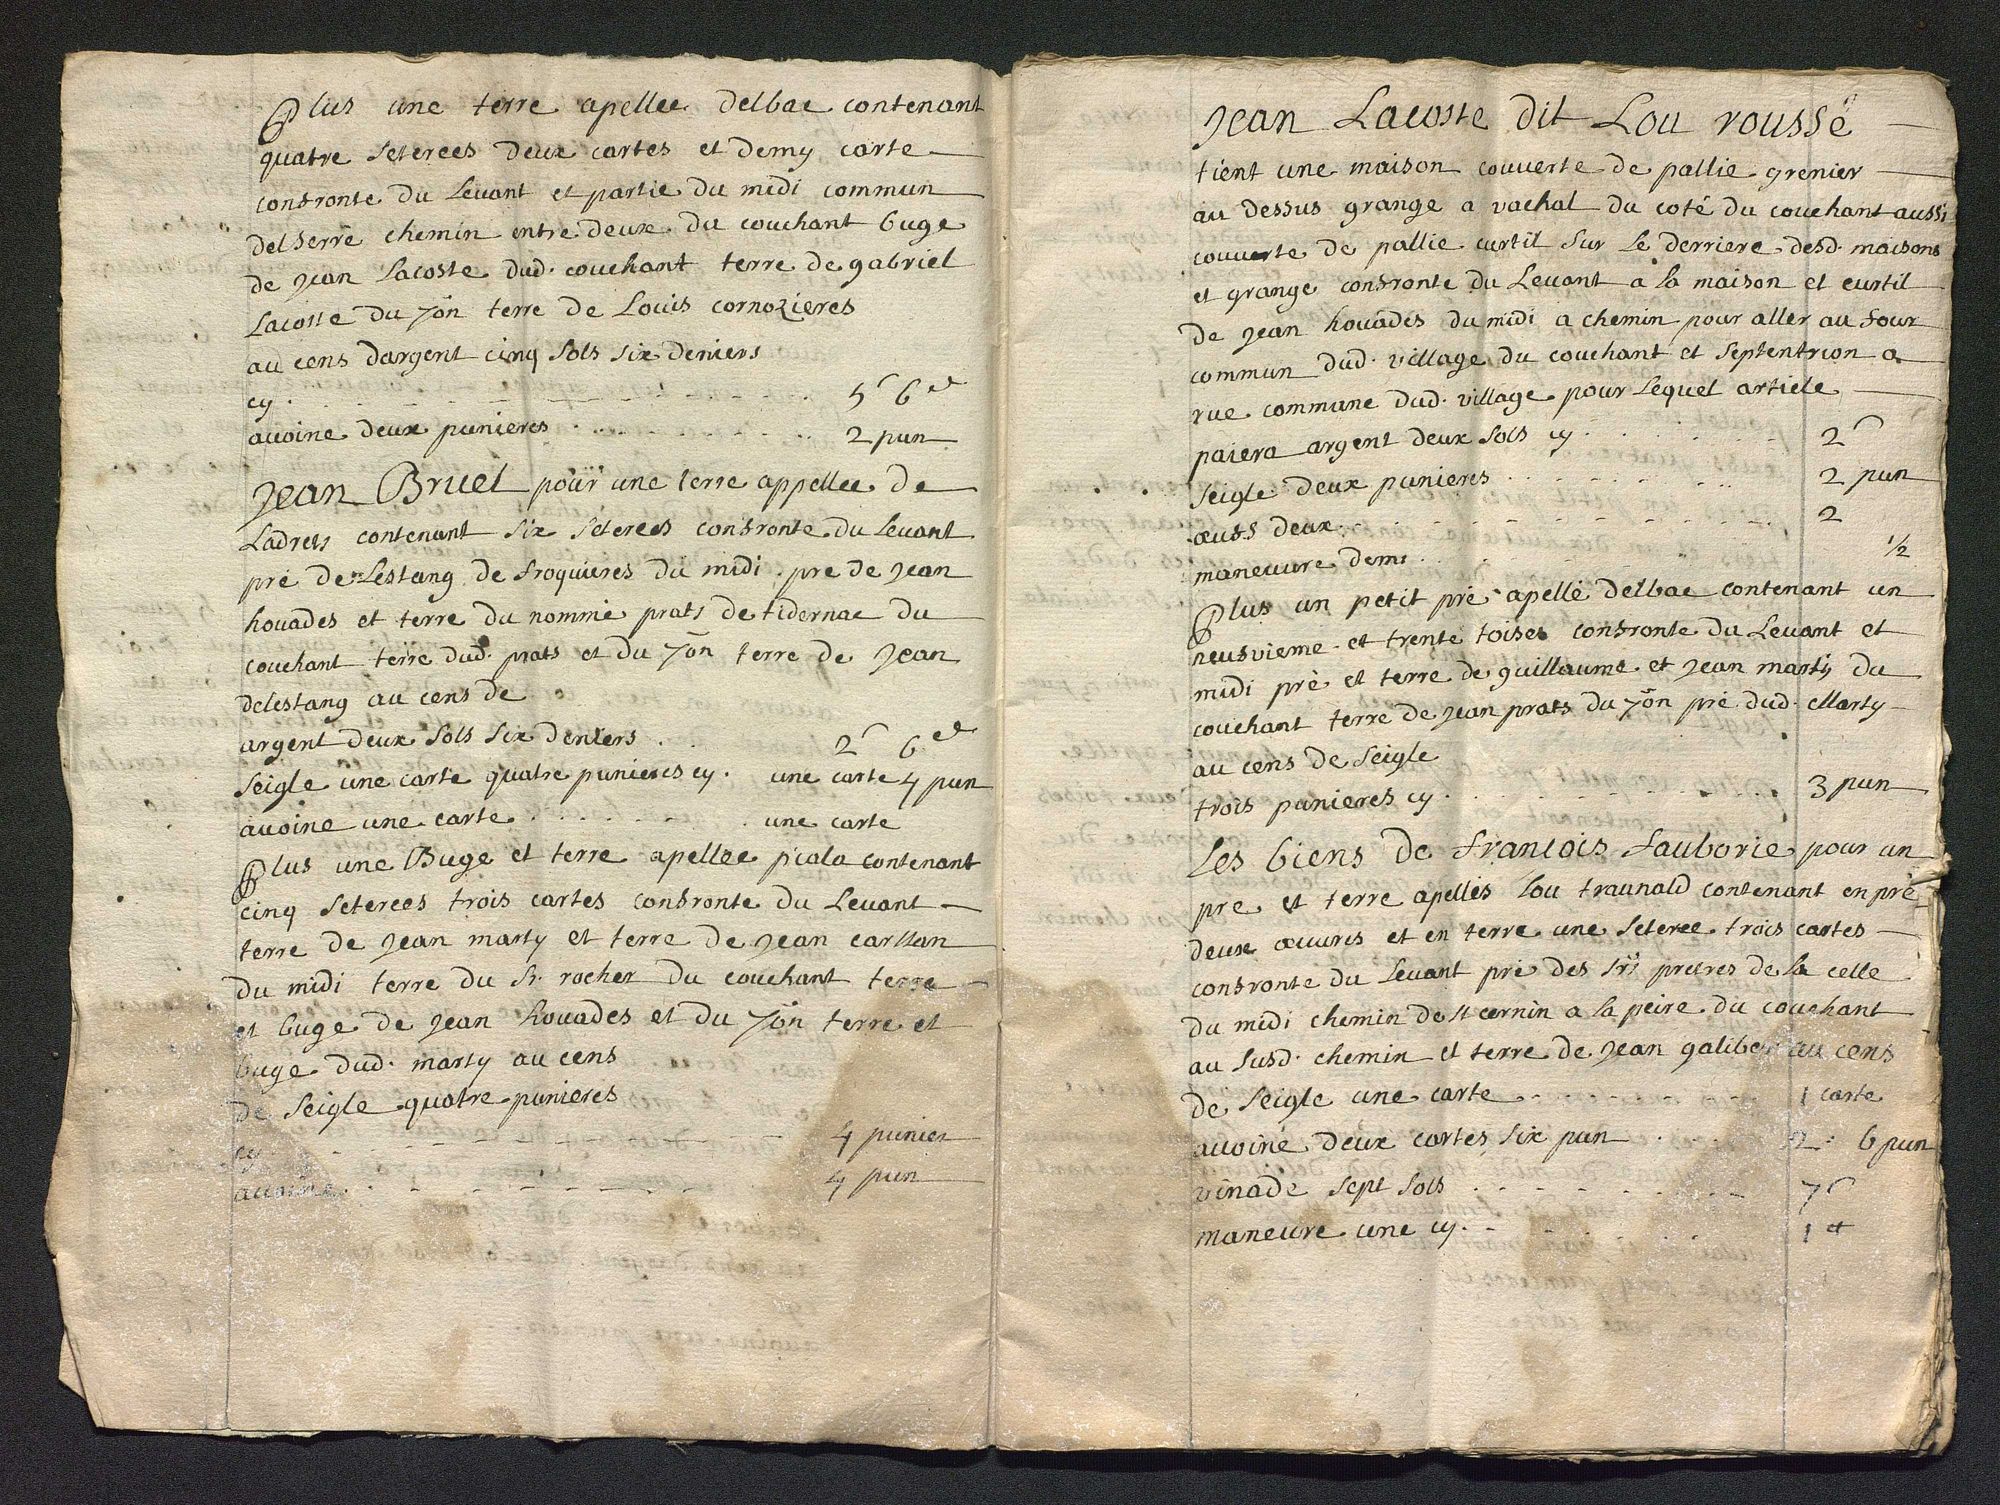 Plus une terre apellee delbac contenant
quatre seterees deux cartes et demy carte
confronte du Levant et partie du midi commun
del serre chemin entre deux du couchant buge
de jean Lacoste dud. couchant terre de gabriel
Lacoste du 7on terre de Louis cornozieres
au cens dargent cinq sols six deniers
cy . . . 5s 6d
avoine deux punieres . . . 2 pun
Jean Bruel pour une terre appellee de
Ladrets contenant six seterees confronte du Levant
pré de Lestang de froquieres du midi pre de jean
houades et terre du nommé prats de tidernac du
couchant terre dud. prats et du 7on terre de jean
delestang au cens de
argent deux sols six deniers . . 2s 6d
seigle une carte quatre punieres cy . une carte 4 pun
avoine une carte . . . une carte
Plus une Buge et terre apellee picala contenant
cinq seterees trois cartes confronte du Levant
terre de jean marty et terre de jean carllan
du midi terre du sr. rocher du couchant terre
et buge de jean houades et du 7on terre et
buge dud. marty au cens
de seigle quatre punieres
cy . . . 4 punier
avoine . . . 4 pun
Jean Lacoste dit Lou rousse
tient une maison couverte de pallie grenier
au dessus grange a vachal du coté du couchant aussi
couverte de pallie curtil sur le derriere desd. maisons
et grange confronte du Levant a la maison et curtil
de jean houades du midi a chemin pour aller au four
commun dud. village du couchant et septentrion a
rue commune dud. village pour lequel article
paiera argent deux sols cy . . . 2s
seigle deux punieres . . . 2 pun
œufs deux . . . 2
maneuvre demi . . . 1/2
Plus un petit pré apellé delbac contenant un
neufvieme et trente toises confronte du Levant et
midi pré et terre de guillaume et jean marty du
couchant terre de jean prats du 7on pré dud. Marty
au cens de seigle
trois punieres cy . . . 3 pun
Les biens de francois Fauborie pour un
pre et terre apellés Lou traunald contenant en pré
deux œuvres et en terre une seteree trois cartes
confronte du Levant pré des srs pretres de la celle
du midi chemin de st cernin a la peire du couchant
au susd. chemin et terre de jean galiber au cens
de seigle une carte . . . 1 carte
avoine deux cartes six pun . . . 2. 6 pun
vinade sept sols . . . 7s
maneuvre une cy . . . 1